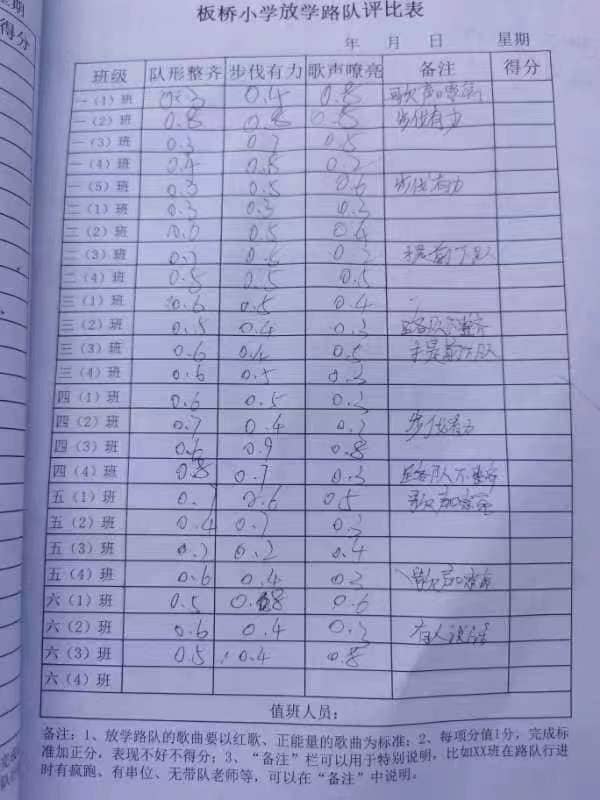 板桥小学放学路队评比表
年 月 日 星期
班级 队形整齐 步伐有力 歌声嘹亮 备注 得分
一（1）班 0.3 0.4 0.8 歌声嘹亮
一（2）班 0.8 0.8 0.5 步伐有力
一（3）班 0.3 0.5
一（4）班 0.4 0.5
一（5）班 0.3 0.5 0.6 步伐有力
二（1）班 0.3 0.3 0.3
二（2）班 0.0 0.5 0.4
二（3）班
二（4）班 0.5 0.5 0.5
三（1）班 0.6 0.5 0.4
三（2）班 0.5 0.4 0.3 路队不整齐
三（3）班 0.6 0.5
三（4）班 0.6 0.5 0.3
四（1）班 0.6 0.5 0.3
四（2）班 0.7 0.4 步伐有力
四（3）班 0.6 0.9 0.8
四（4）班 0.8 0.7 0.3 路队不整齐
五（1）班 0.6 0.5 歌声嘹亮
五（2）班 0.4 0.7
五（3）班 0.2 0.4
五（4）班 0.6 0.4 0.3 歌声嘹亮
六（1）班 0.5 0.8 0.6
六（2）班 0.6 0.4 0.3 有人说话
六（3）班 0.5 0.4 0.8
六（4）班
值班人员：
备注：1、放学路队的歌曲要以红歌、正能量的歌曲为标准；2、每项分值1分，完成标
准加正分，表现不好不得分；3、“备注”栏可以用于特别说明，比如XX班在路队行进
时有疯跑、有串位、无带队老师等，可以在“备注”中说明。